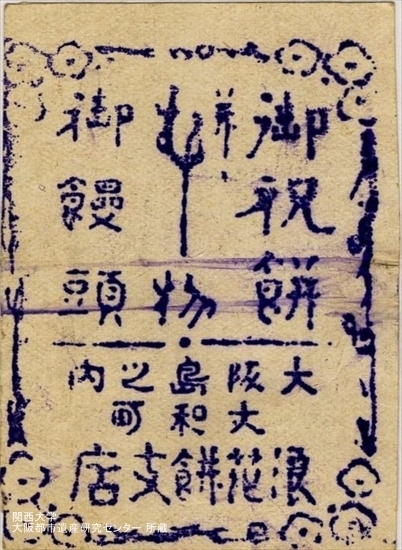 御祝餅
物
御饅頭
大阪島之内
大和町
浪花餅支店
関西大学
大阪都市遺産研究センター 所蔵